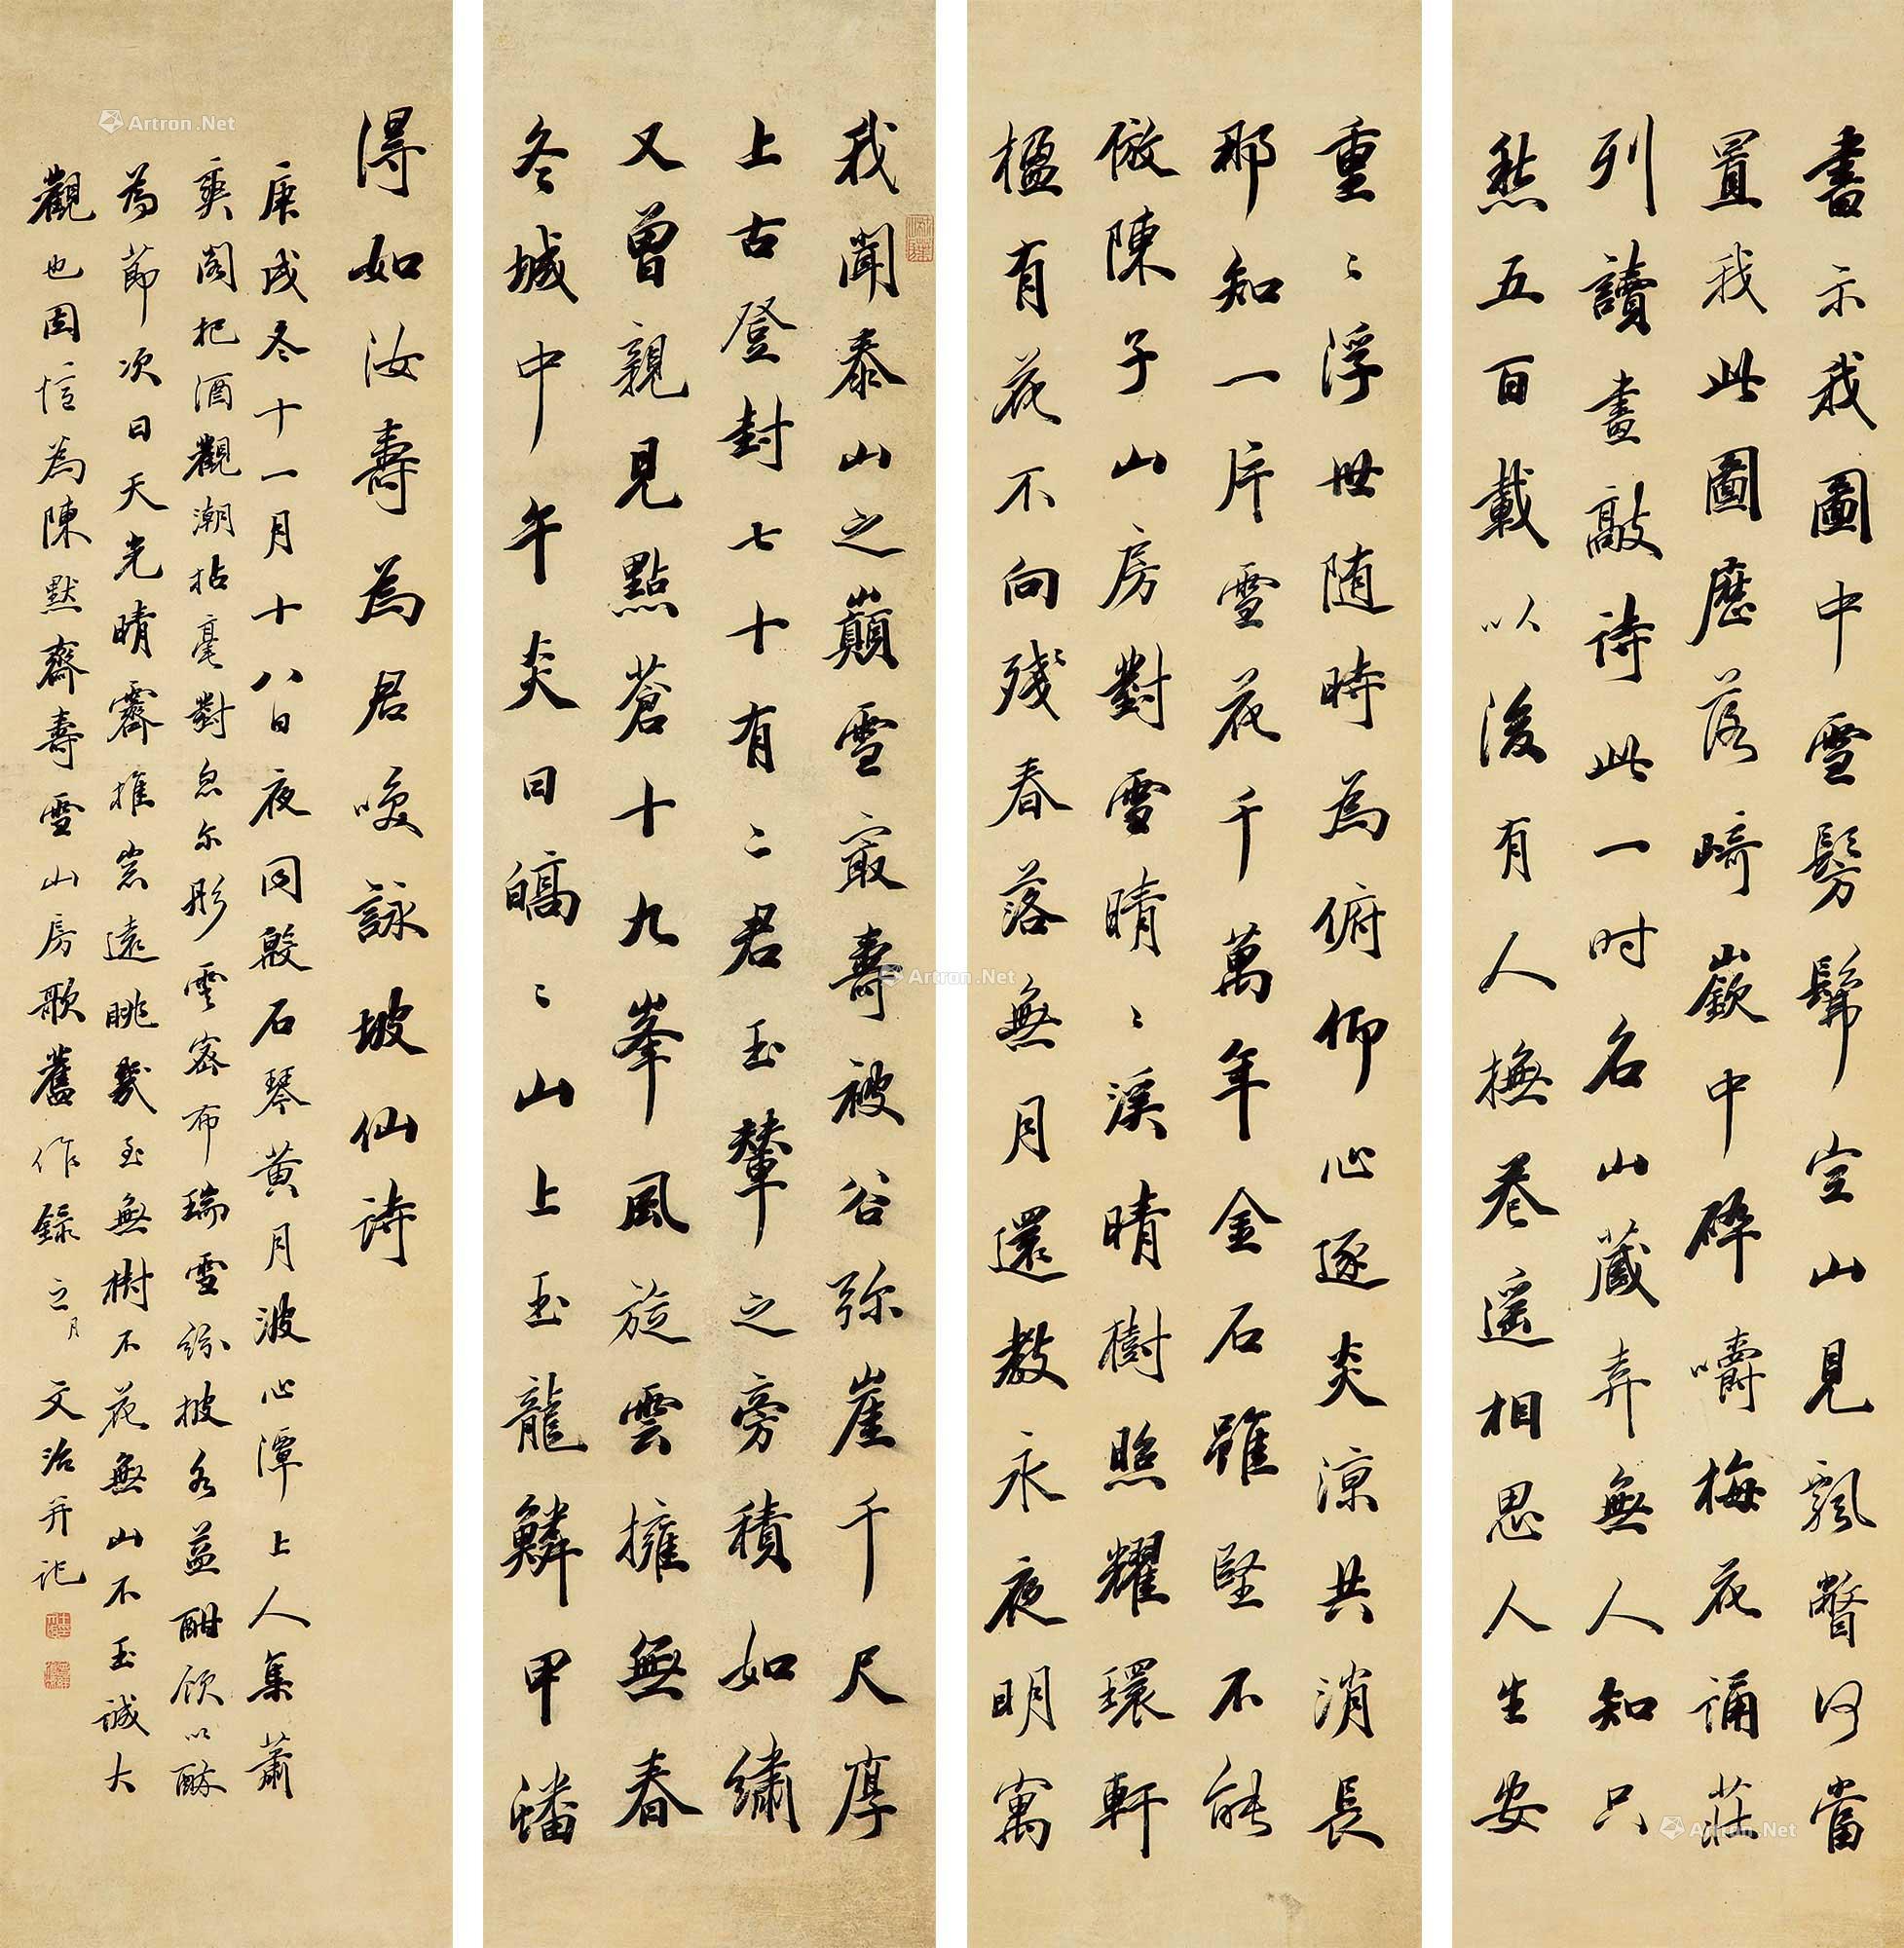 書示我圖中雪鬢髯空山見飄瞥何當
置我此圖歷落崎嶔中碎嚼梅花誦莊
列讀畫敲詩此一时名山藏弆無人知只
愁五百載以後有人撫卷遥相思人生安
重〻浮世随時為俯仰心逐炎涼共消長
那知一片雪花千萬年金石雖堅不能
倣陳子山房對雪晴〻溪晴樹照耀環軒
楹有花不向殘春落無月還教永夜明寓
我聞泰山之巔雪最壽被谷弥崖千尺厚
上古登封七十有二君玉輦之旁積如繡
又曾親見點蒼十九峯風旋雲擁無春
冬城中午炎日皜〻山上玉龍鱗甲蟠
得如汝壽為君唤詠坡仙詩
庚戌冬十一月十八日夜同殷石琴黄月波心潭上人集蕭
爽閣把酒觀潮拈毫對忽尔彤雲密布瑞雪紛披各益酣以
為節次日天光晴霽推窓遠眺幾至無樹不花無山不玉誠大
觀也因憶為陳默齋壽雪山房歌舊作録之月 文治并記
Artron.Net
Artron.Net
Artron.Net